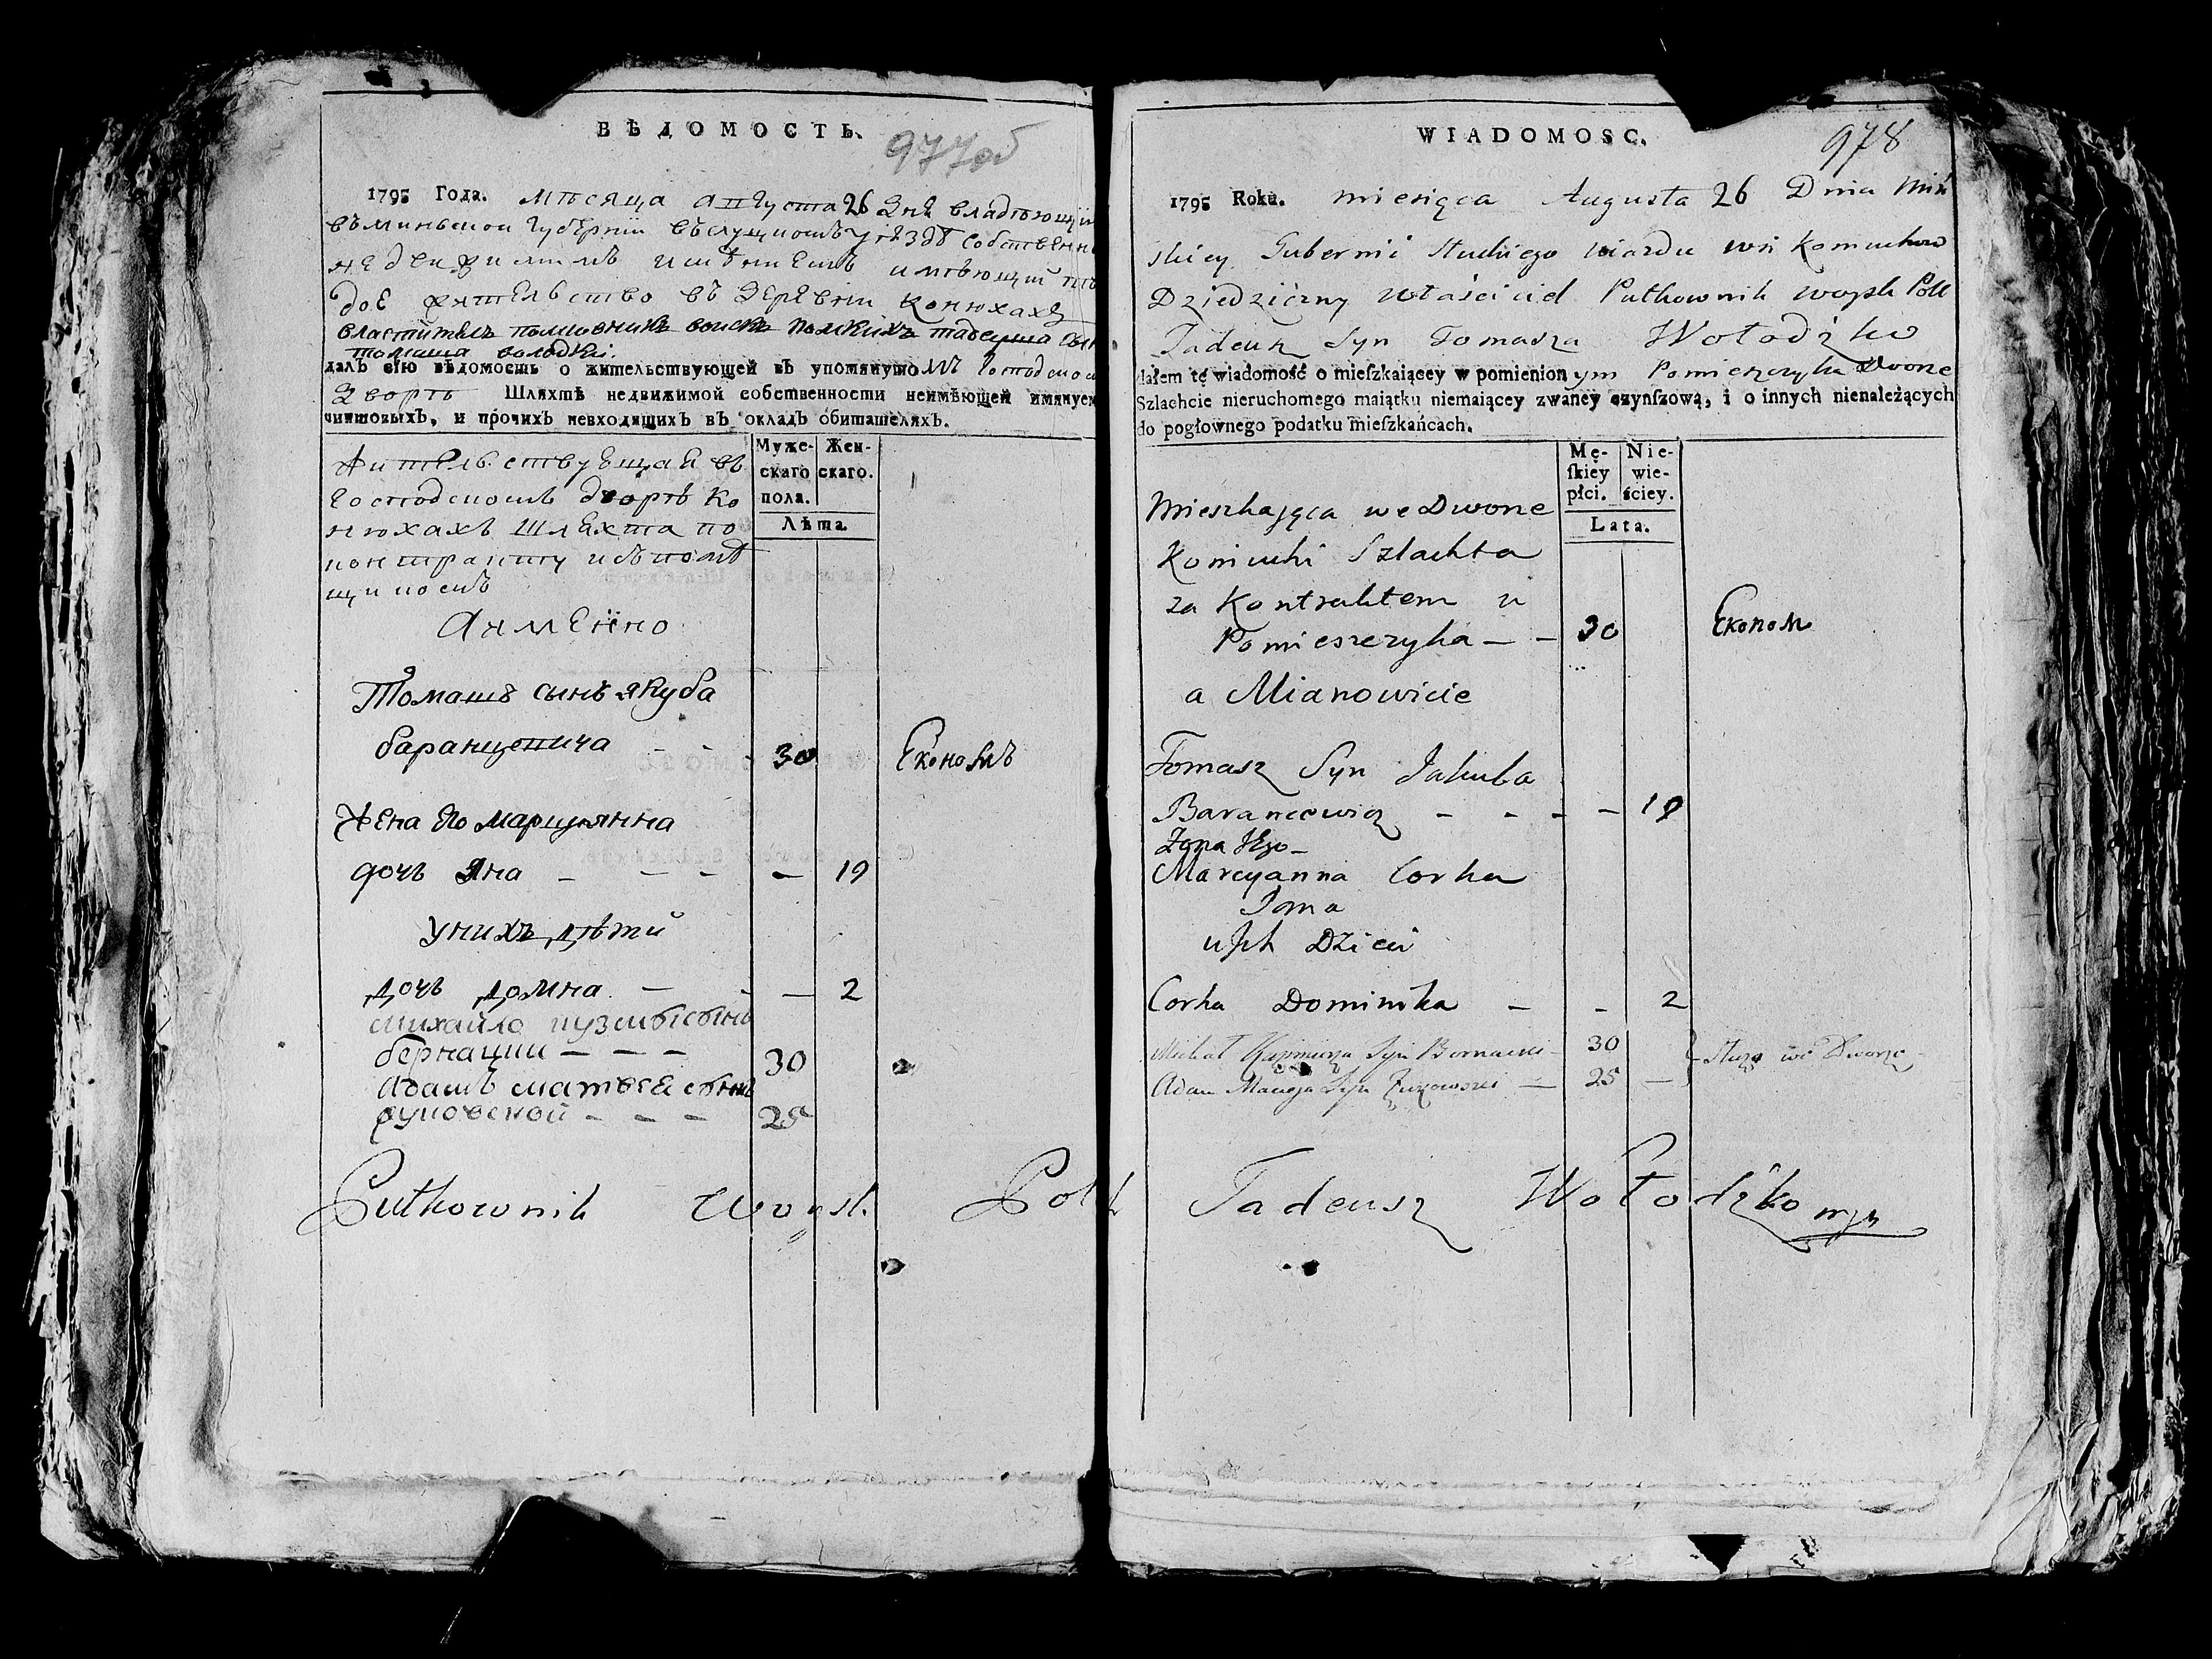 ВѢДОМОСТЬ.
977об
1795 Года. мѣсяца августа 26 дня владѣющій
въ минской губерніи въ слуцкомъ уездѣ собственн
недвижимымъ имѣниемъ имѣющий
жительство въ деревни Конюхахъ
властитель полковникъ войскъ полскихъ тадеуша сын
томаша володки.
далъ сію вѣдомость о жительствующей въ упомянутомъ господском
дворѣ Шляхтѣ недвижимой собственности неимѣющей имянуем
чиншовыхъ, и прочихъ невходящихъ въ окладъ обитателяхъ.
Муже- Жен-
скаго скаго.
пола.
Лѣта.
Жительствующая въ
господскомъ дворѣ Ко
нюхахъ шляхта по
контракту и въ помѣ
щика
А имѣнно
Томашъ сынъ якуба
баранцевича - - 30 Економъ
Жена его Марцыянна
дочь Яна - - - - 19
у нихъ дѣти
дочь домна - - - 2
Михайло
бернацки - - - 30
Адамъ матвея сынъ
- - - 25
Pułkownik Woysk Pols
WIADOMOSC.
978
1795 Roku. miesięca Augusta 26 Dnia Miń
skiey Gubernii Słuckiego wsi
Dziedziczny właściciel Pułkownik woysk Pols
Tadeusz Syn Tomasza Wołodzko
dałem tę wiadomość o mieſzkaiącey w pomienionym Pomieszczyka Dworze
Szlachcie nieruchomego maiątku niemaiącey zwaney czynſzową, i o innych nienależących
do pogłownego podatku mieſzkańcach.
Mę- Nie-
ſkiey wie-
płci. ściey.
Lata.
Mieszkająca we Dworze
Koniuchi Szlachta
za Kontraktem u
Pomieszczyka - - 30 Економ
a Mianowicie
Tomasz Syn Jakuba
Barancewicz - - - - 19
Żona Jego -
Marcyanna Corka
Jana
u Jch Dzieci
Corka Dominika - - 2
Michał Kazimierza Syn Bernacki - 30
Adam Macieja Syn - 25 - Służą we Dworze -
Tadeusz Wołodzko mp